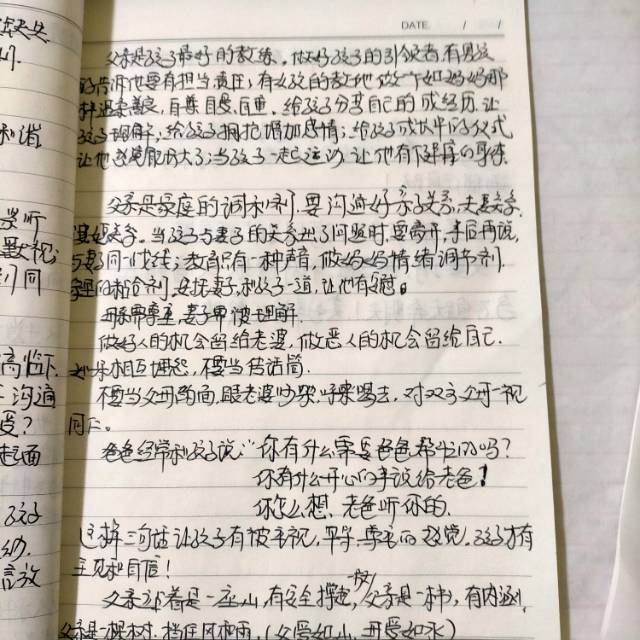 DATE / /
父亲是孩子最好的教练。做好孩子的引领者,有男孩
的告诉他要有担当责任;有女孩的教她做个如妈妈那
样温柔善良,自尊自爱自重。给孩子分享自己的成经历,让
孩子理解;给孩子拥抱增加感情;给孩子成长中的仪式
让他感觉能力大了;当孩子一起运动,让他有健康的身体.
父亲是家庭的调和剂.要沟通好亲子关系,夫妻关系,
婆媳关系。当孩子与妻子的关系出了问题时,要离开,来后再说,
与妻子同一战线;教育只有一种声音,做妈妈情绪调节剂.
的粘合剂.安抚妻子,和孩子一道,让他有爱。
妻子 被理解.
做好人的机会留给老婆,做恶人的机会留给自己.
相互埋怨,不要当传话筒.
不要当父母的面,跟老婆吵架 ,对双方父母一视
同仁。
爸爸经常和孩子说:"你有什么需要爸爸帮忙的吗?
你有什么开心的事说给老爸!
你怎么想,老爸听你的.
这样三句话让孩子有被重视,平等,尊重的感觉.孩子才有
主见和自信!
父亲 是一座山,有安全 ,父亲是一种 ,有内涵,
父亲是一棵树,挡住风和雨,(父爱如山,母爱如水)
沟通
起面
孩子